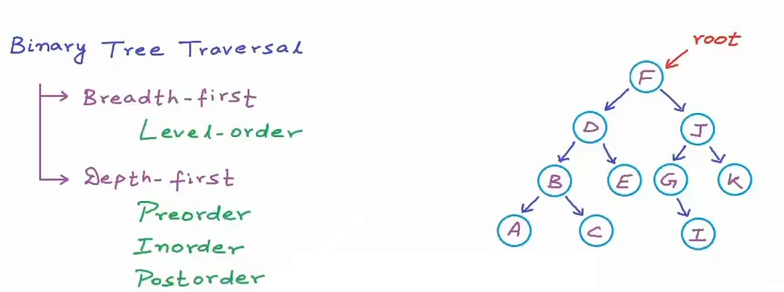 Binary Tree Traversal
Breadth-first
Level-order
Depth-first
Preorder
Inorder
Postorder
root
F
D J
B E G K
A C I